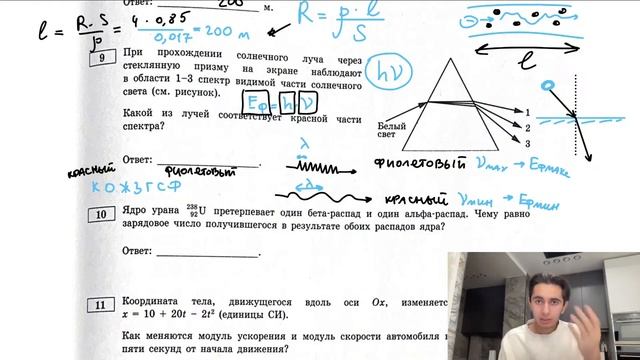 Ответ: 200 м.
ℓ = R·S/ρ = 4·0,85/0,017 = 200 м
R = ρ·ℓ/S
ℓ
9 При прохождении солнечного луча через
стеклянную призму на экране наблюдают
в области 1–3 спектр видимой части солнечного
света (см. рисунок).
Eф = h ν
hν
Какой из лучей соответствует красной части
спектра?
Белый
свет
1
2
3
Ответ: .
красный фиолетовый
КОЖЗГСФ
λ
фиолетовый νмах → Eфмакс
λ
красный νмин → Eфмин
10 Ядро урана ²³⁸₉₂U претерпевает один бета-распад и один альфа-распад. Чему равно
зарядовое число получившегося в результате обоих распадов ядра?
Ответ: .
11 Координата тела, движущегося вдоль оси Ox, изменяетс
x = 10 + 20t − 2t² (единицы СИ).
Как меняются модуль ускорения и модуль скорости автомобиля
пяти секунд от начала движения?